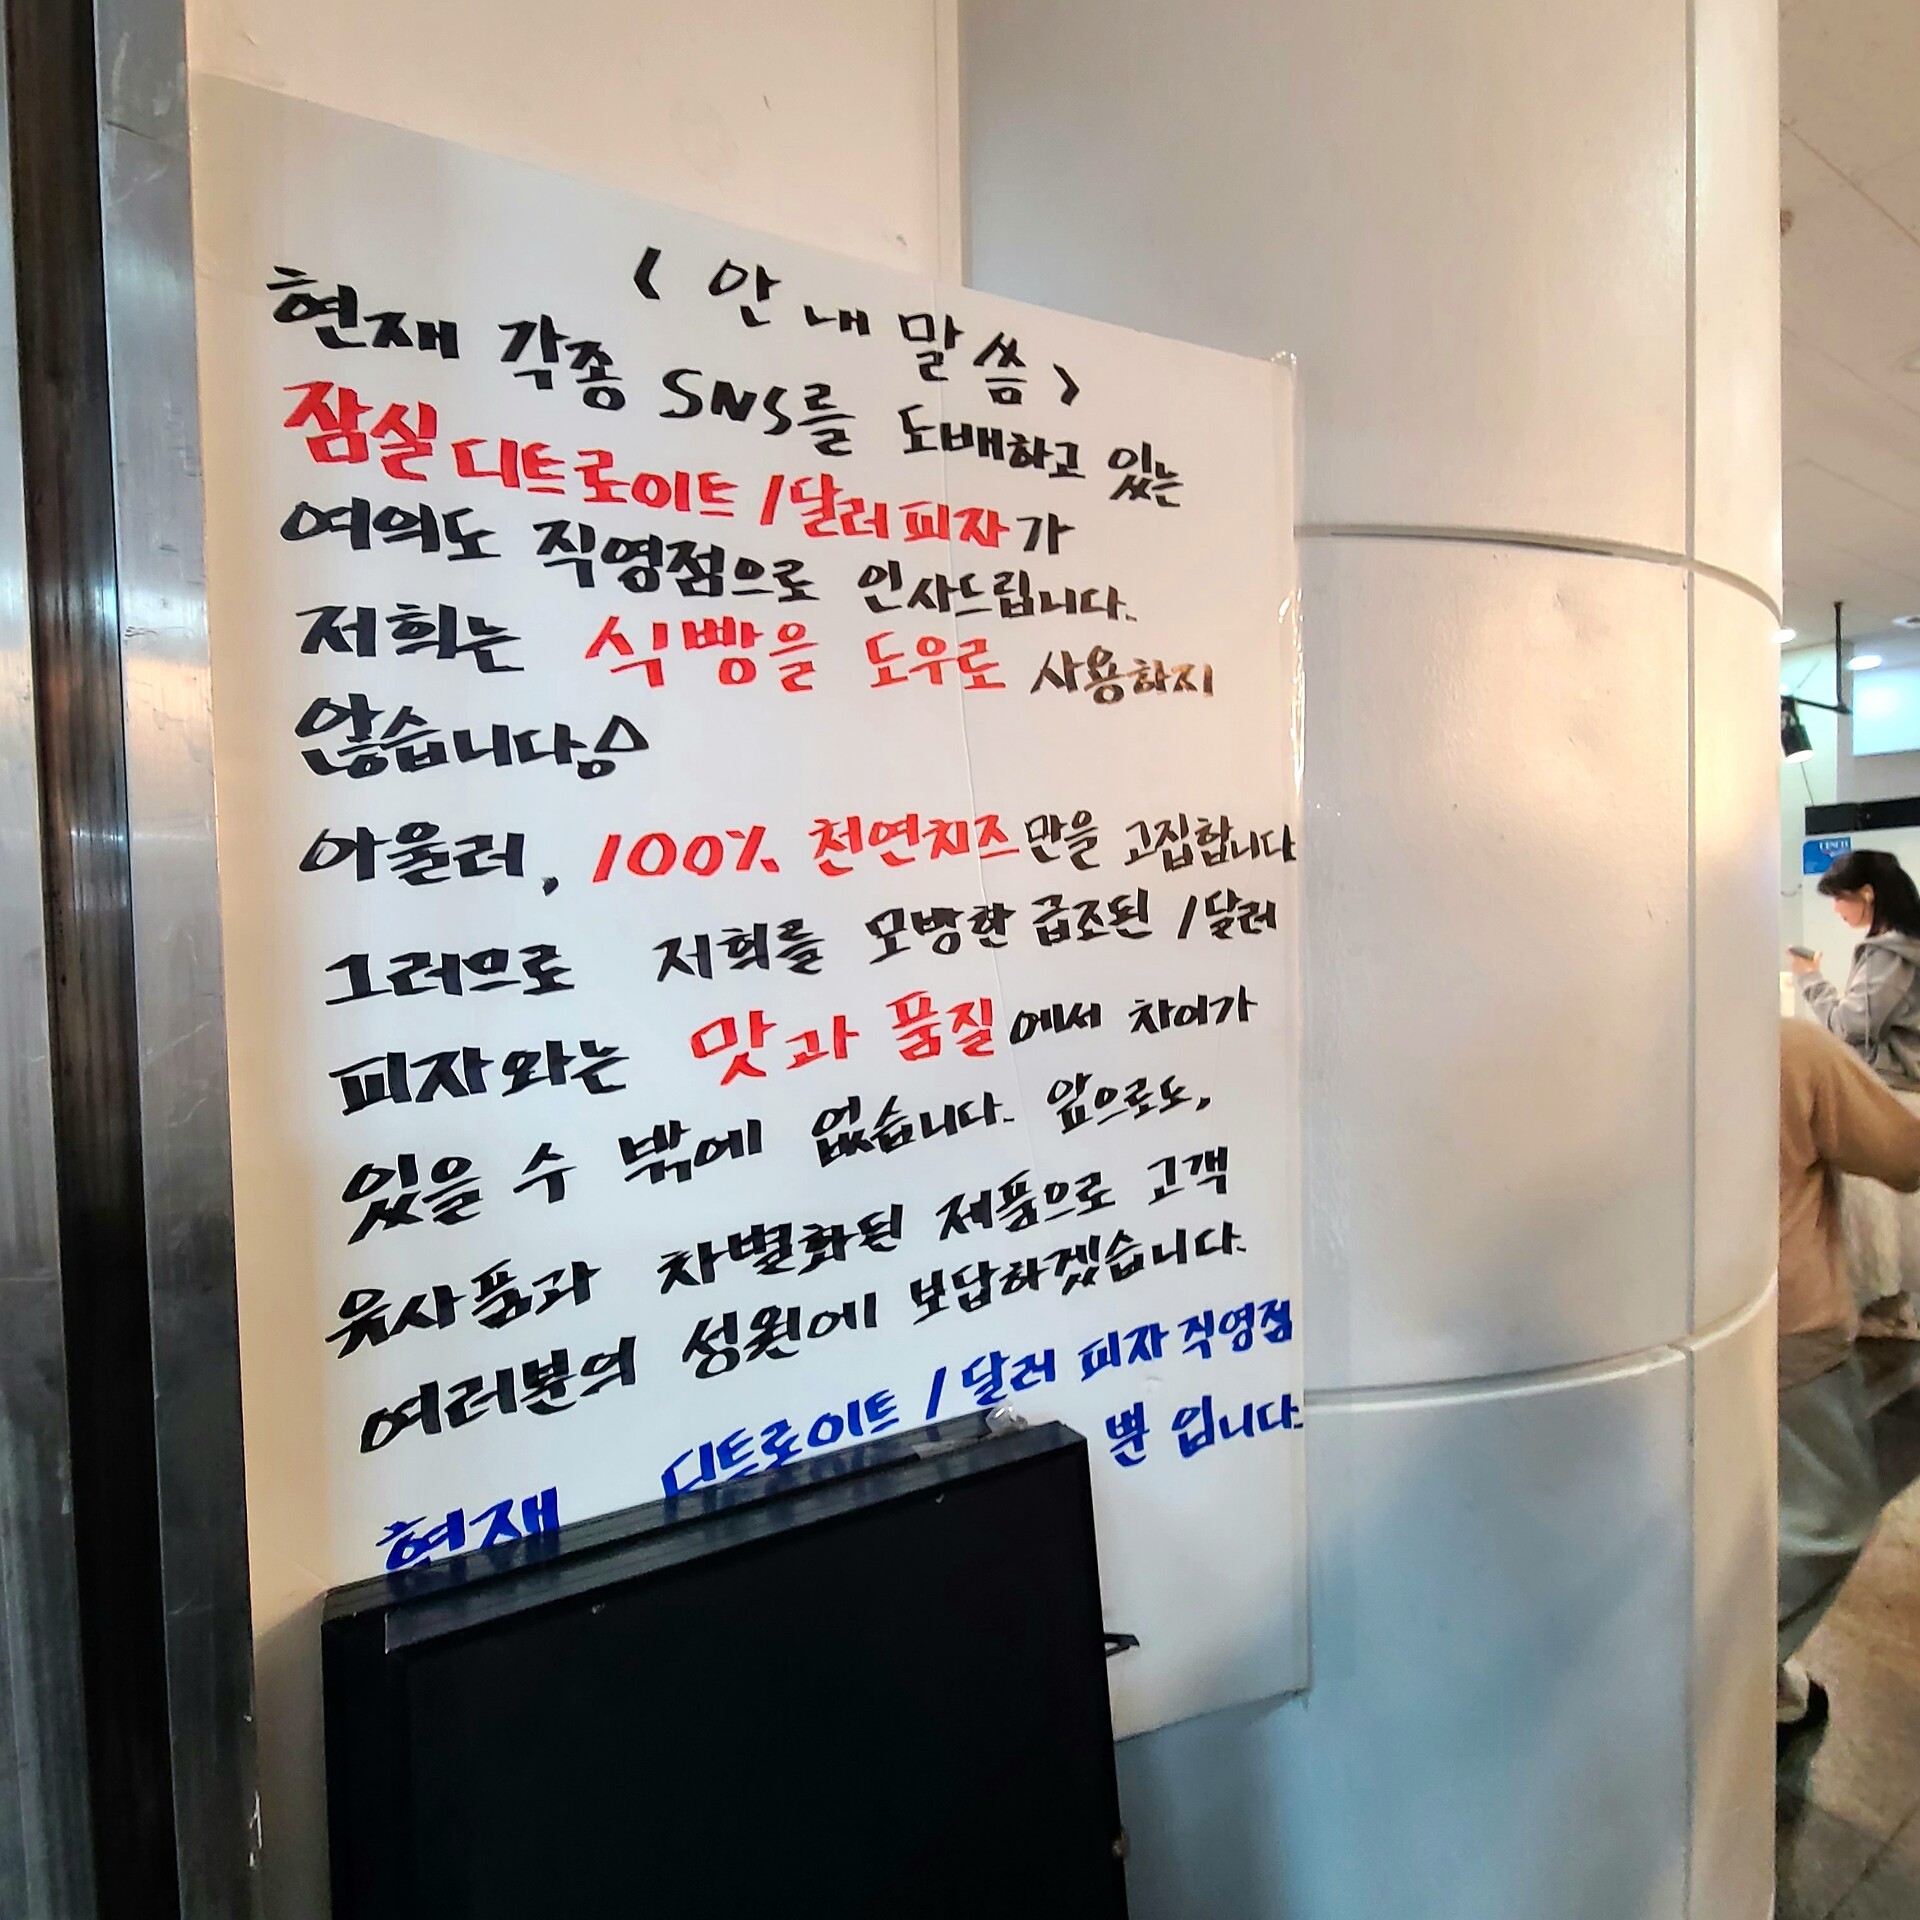 < 안내 말씀 >
현재 각종 SNS를 도배하고 있는
잠실 디트로이트 1달러 피자가
여의도 직영점으로 인사드립니다.
저희는 식빵을 도우로 사용하지
않습니다
아울러, 100% 천연치즈만을 고집합니다
그러므로 저희를 모방한 급조된 1달러
피자와는 맛과 품질에서 차이가
있을 수 밖에 없습니다. 앞으로도,
유사품과 차별화된 제품으로 고객
여러분의 성원에 보답하겠습니다.
현재 디트로이트 1달러 피자 직영점
뿐 입니다.